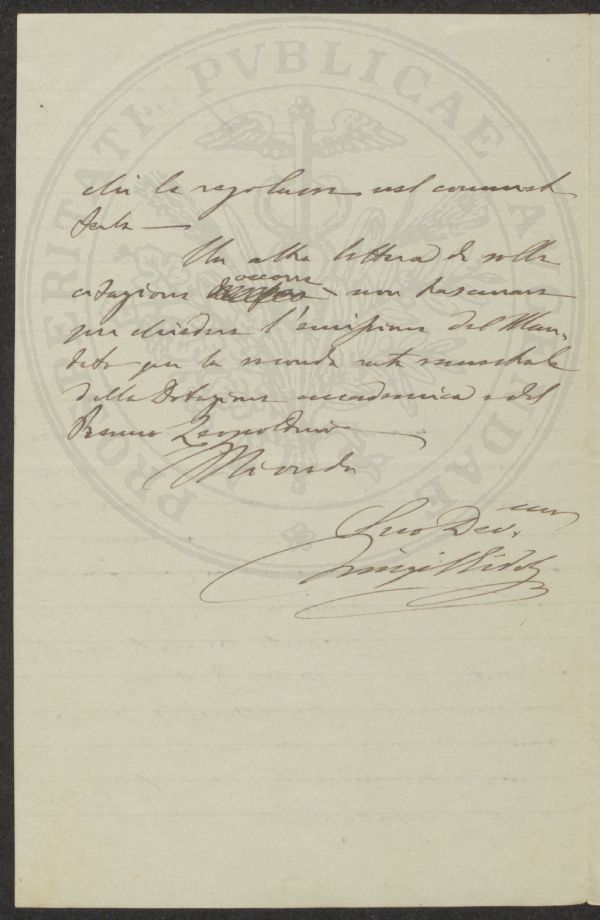 PROSPERITATI PVBLICAE AVGENDAE
che la regolano nel
Un altra lettera di solle
citazione occorre non trascurare
per chiedere l'emissione del Man-
dato per la seconda rata semestrale
della Dotazione accademica e del
Premio Leopoldino
Mi creda
Suo Dev.mo
Luigi